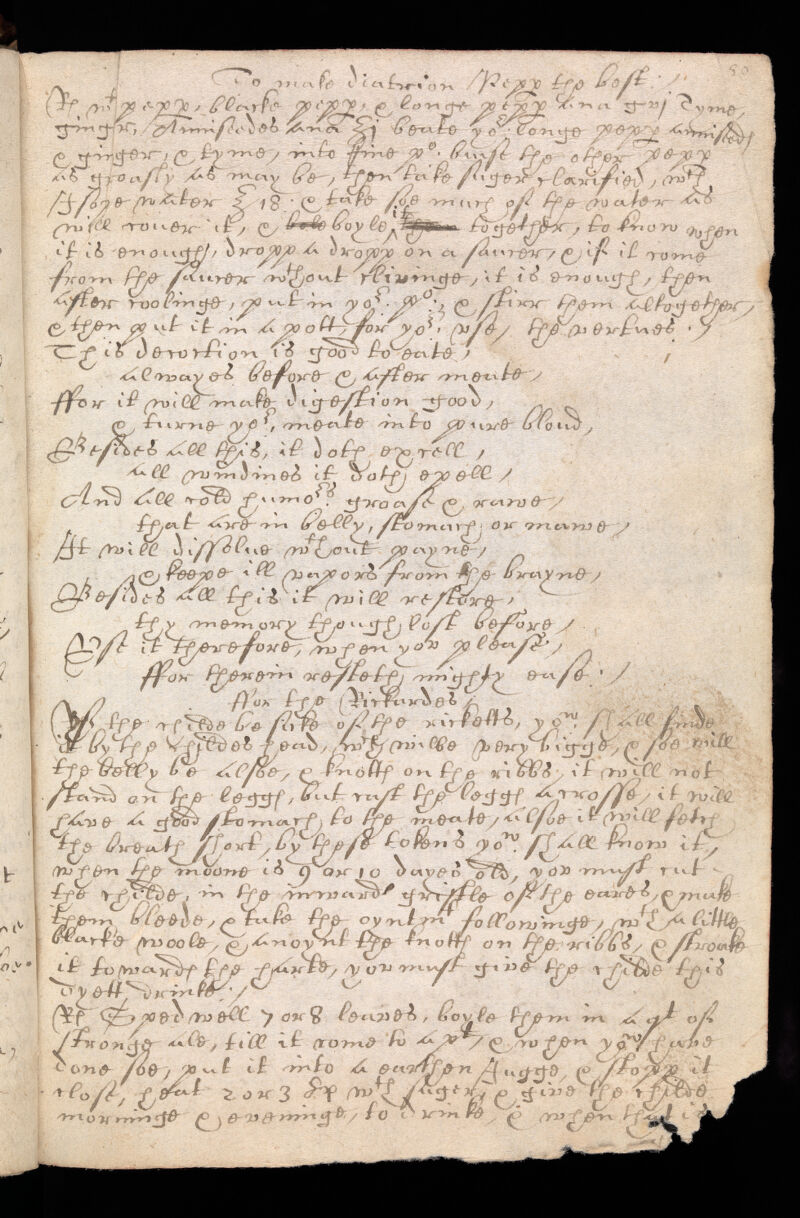 To make diatrion Pepp the best :/
Rx wt pepp, blacke pepp, & longe pepp ana gvj Tyme,
gingr, Anniseedes ana ℥j beate yor longe pepp anniseeds
& ginger, & tyme, into fine po. bruse the other pepp
as groasly as may be, then take suger clarified, wth
Isope water ℥ 18. & take soe much of the water as
will couer it, & boyle it together, to know when
it is enough, dropp a dropp on a saucer, & if it come
from the saucer wthout clivinge, it is enough, then
after coolinge, put in yor. po. & stirr them altogether,
& then put it in a pott, for yor. vse, the vertues :/
This decoction is good to eate,
alwayes before & after meate,
ffor it will make digestion good,
& turne yor. meate into pure bloud,
Besides all this, it doth excell,
all windines it doth expell,
And all cold humors groase & rawe,
that are in belly, stomach, or mawe,
It will dissolue wthout payne,
& keepe ill vapors from the brayne,
Besides all this it will restore,
thy memory though lost before,
Vse it therefore, when you please,
ffor therein resteth mighty ease :/
ffor the Rickardes,
If the childe be sicke of the ricketts, you shall finde
it by the childes head, wch wilbe very bigge, & soe will
the belly be alsoe, & knotts on the ribbs, it will not
stand on the leggs, but cast the leggs acrosse, it will
have a good stomach, to the meate, alsoe it will fetch
the breath short, by these tokens you shall know it,
when the moone is 9 or 10 dayes old, you must cut
the childe, in the inward gristle of the eares, & make
them bleede, & take the oyntmt followinge, wth a little
blacke woole, & anoynt the knotts on the ribbs, & stroake
it towards the harte, you must give the childe this
dyett drinke :/
Rx Spedwell 7 or 8 leaves, boyle them in a qt of
stronge ale, till it come to a pt, & when you have
done soe, put it into a earthen Jugge, & stopp it
close, heat 2 or 3 wth suger, & give the childe
morninge & eveninge, to drinke, & when that is